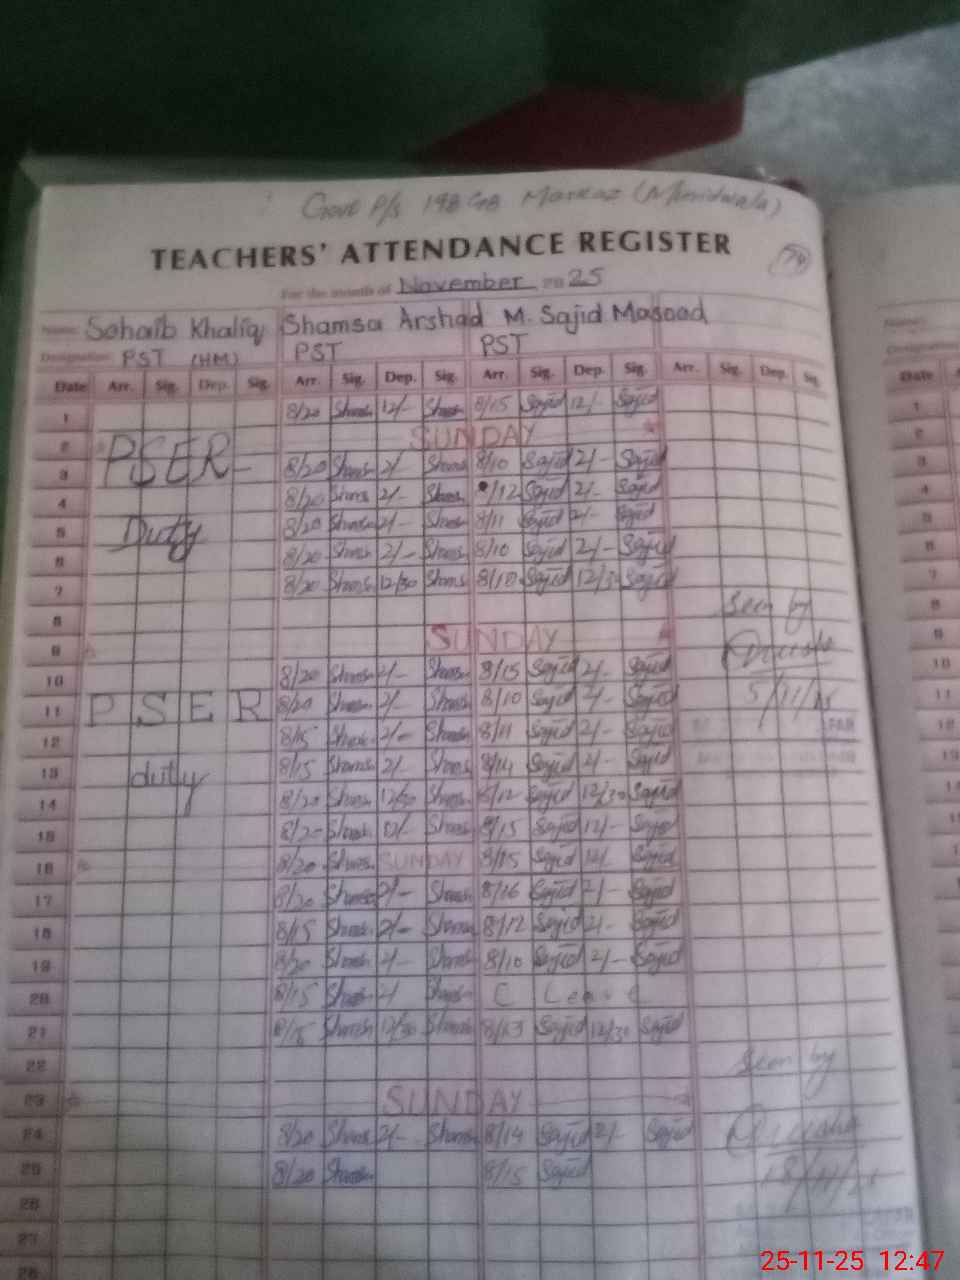 Govt P/s 198 GB Markaz (Muridwala)
TEACHERS' ATTENDANCE REGISTER
74
For the month of November 2025
Name: Sohaib Khaliq Shamsa Arshad M. Sajid Masood
Designation PST (HM) PST PST
Date Arr. Sig. Dep. Sig. Arr. Sig. Dep. Sig. Arr. Sig. Dep. Sig. Arr. Sig. Dep. Sig.
1 8/20 Shams 12/- Shams 8/15 Sajid 12/- Sajid
2 SUNDAY
PSER
3 8/20 Shams 2/- Shams 8/10 Sajid 2/- Sajid
4 8/20 Shams 2/- Shams /12 Sajid 2/- Sajid
Duty
5 8/20 Shams 2/- Shams 8/11 Sajid 2/- Sajid
6 8/20 Shams 2/- Shams 8/10 Sajid 2/- Sajid
7 8/20 Shams 12/30 Shams 8/10 Sajid 12/30 Sajid
8 Seen by
9 SUNDAY
10 8/20 Shams 2/- Shams 8/15 Sajid 2/- Sajid
11 PSER 8/20 Shams 2/- Shams 8/10 Sajid 2/- Sajid 5/11/25
12 8/15 Shams 2/- Shams 8/11 Sajid 2/- Sajid
13 duty 8/15 Shams 2/- Shams 8/14 Sajid 2/- Sajid
14 8/20 Shams 12/30 Shams 8/12 Sajid 12/30 Sajid
15 8/20 Shams 12/- Shams 8/15 Sajid 12/- Sajid
16 8/20 Shams SUNDAY 8/15 Sajid 12/- Sajid
17 8/20 Shams 2/- Shams 8/16 Sajid 2/- Sajid
18 8/15 Shams 2/- Shams 8/12 Sajid 2/- Sajid
19 8/20 Shams 2/- Shams 8/10 Sajid 2/- Sajid
20 8/15 Shams 2/ Shams C Leave
21 8/15 Shams 12/30 Shams 8/13 Sajid 12/30 Sajid
22 Seen by
23 SUNDAY
24 8/20 Shams 2/- Shams 8/14 Sajid 2/- Sajid
25 8/20 Shams 8/15 Sajid 18/11/25
26
27
28
Name:
Designation
Date
1
2
3
4
5
6
7
8
9
10
11
12
25-11-25 12:47